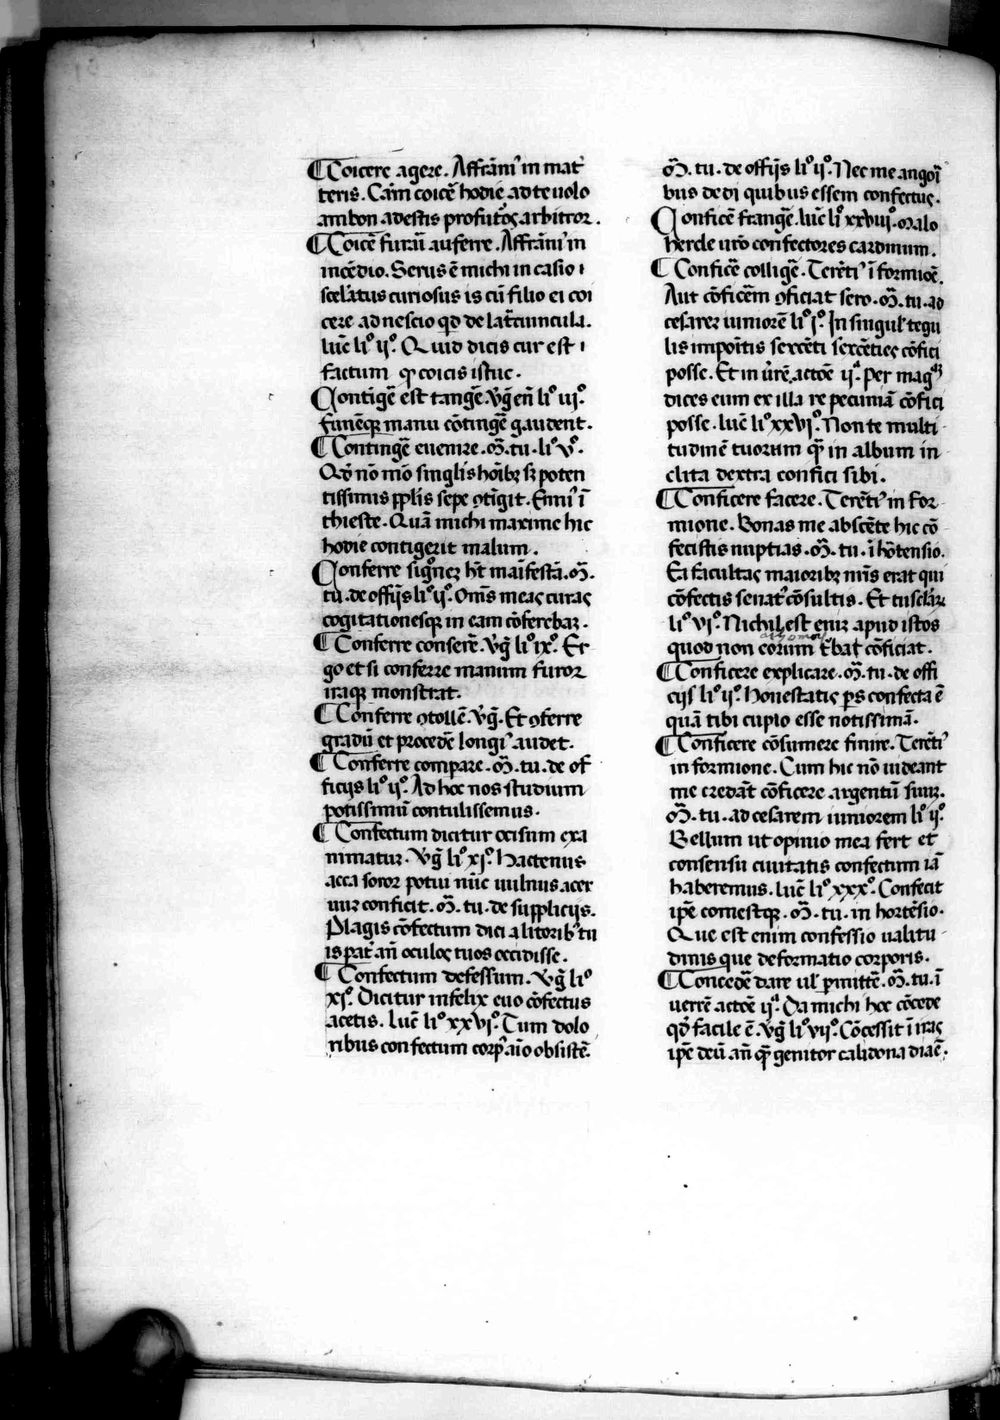 ¶Coicere agere. Affrāniꝰ in mat̄
teris. Cām coicē hodie ad te uolo
ambon adestis profutoꝝ arbitror.
¶Coicē furari auferre. Affrāniꝰ in
incēdio. Serus ē michi in casio
scelatus curiosus is cū filio ei coi
cere ad nescio qd de lat̄iuncula.
luē̄ li° ij°. Quid dicis cur est
factum qͥ coicis istuc.
Contigē̄ est tangē̄. v̄ḡ en̄ li° vj°.
funēqꝫ manu cōtingē̄ gaudent.
¶Contingē̄ euenire. M̄. tu. li° v°.
Qd nō mō singlis hoībꝫ sꝫ poten
tissimis pplis sepe ꝯtīgit. Enniꝰ ī
thieste. Quā michi maxime hic
hodie contigerit malum.
Conferre sigͦneꝫ hn̄t maifestā. M̄.
tu. de offijs li° ij°. Om̄s meas curas
cogitationesqꝫ in eam cōferebaꝫ.
¶Conferre conserē̄. v̄ḡ li° ix°. Er
go et si conferre manum furor
iraqꝫ monstrat.
¶Conferre ꝯtollē̄. v̄ḡ. Et ꝯferre
gradū et procedē̄ longiꝰ audet.
¶Conferre compare. M̄. tu. de of
ficijs li° ij°. Ad hec nos studium
potissimū contulissemus.
¶Confectum dicitur occisum exa
nimatuꝫ. v̄ḡ li° xj°. hactenus
acca soror potui nūc uulnus acer
uuꝫ conficit. M̄. tu. de supplicijs.
Plagis cōfectum dici a litoribꝰ tu
is pat̄ an̄ oculos tuos occidisse.
¶Confectum defessum. v̄ḡ li°
xj°. Dicitur infelix euo cōfectus
acetis. luē̄ li° xxvj°. Tum dolo
ribus confectum corpꝰ aīo obsistē̄.
M̄. tu. de offijs li° ij°. Nec me angoī
bus dedi quibus essem confectus.
Conficē̄ frangē̄. luē̄ li° xxviij°. malo
hercle uīro confectores cardinum.
¶Conficē̄ colligē̄. Terētiꝰ ī formiōe.
Aut cōficēm ꝯficiat sero. M̄. tu. ad
cesareꝫ iuniorē li° j°. In singulꝰ tegu
lis impoītis sexcēti sexcēties cōfici
posse. Et in uerē. actōe ij.ᵃ per magͣꝫ
dices eum ex illa re pecuniā cōfici
posse. luē̄ li° xxvj°. Non te multi
tudinem tuorum qͣ in album in
clita dextra confici sibi.
¶Conficere facere. Terētiꝰ in for
mione. Bonas me abscēte hic cō
fecistis nuptias. M̄. tu. ī hōtensio.
Ea facultas maioribꝫ nr̄is erat qui
cōfectis senatꝰ cōsultis. Et tusclāꝝ
li° vj°. Nichil est eniꝫ apud istos
quod non eorum t̄bat cōficiat.
¶Conficere explicare. M̄. tu. de offi
cijs li° ij°. honestatis ps confecta ē
quā tibi cupio esse notissimā.
¶Conficere cōsumere finire. Terētiꝰ
in formione. Cum hic nō uideant
me credāt cōficere argentū suuꝫ.
M̄. tu. ad cesarem iuniorem li° ij°.
Bellum ut opinio mea fert et
consensu ciuitatis confectum iā
haberemus. luē̄ li° xxx°. Confecit
ipē̄ comestqꝫ. M̄. tu. in hortēsio.
Que est enim confessio ualitu
dinis que deformatio corporis.
¶Concedē̄ dare ul̄ pmittē̄. M̄. tu. ī
uerrē actōe ij.ᵃ Da michi hec cōcede
qd facile ē. v̄ḡ li° vij°. Cōcessit ī iras
ipē̄ deū an̄ qͣ genitor calidona diāē.